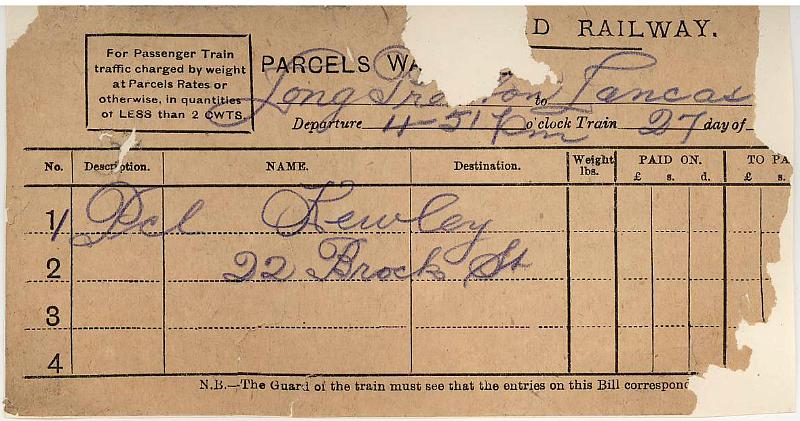 D RAILWAY.
For Passenger Train
traffic charged by weight
at Parcels Rates or
otherwise, in quantities
of LESS than 2 CWTS.
PARCELS WA
Long to Lancas
Departure 4-51 o'clock Train 27 day of
No. Description. NAME. Destination. Weight lbs. PAID ON. £ s. d. TO PA £ s.
1 1 Pcl Kewley
2 22 Brock St
3
4
N.B.—The Guard of the train must see that the entries on this Bill correspond